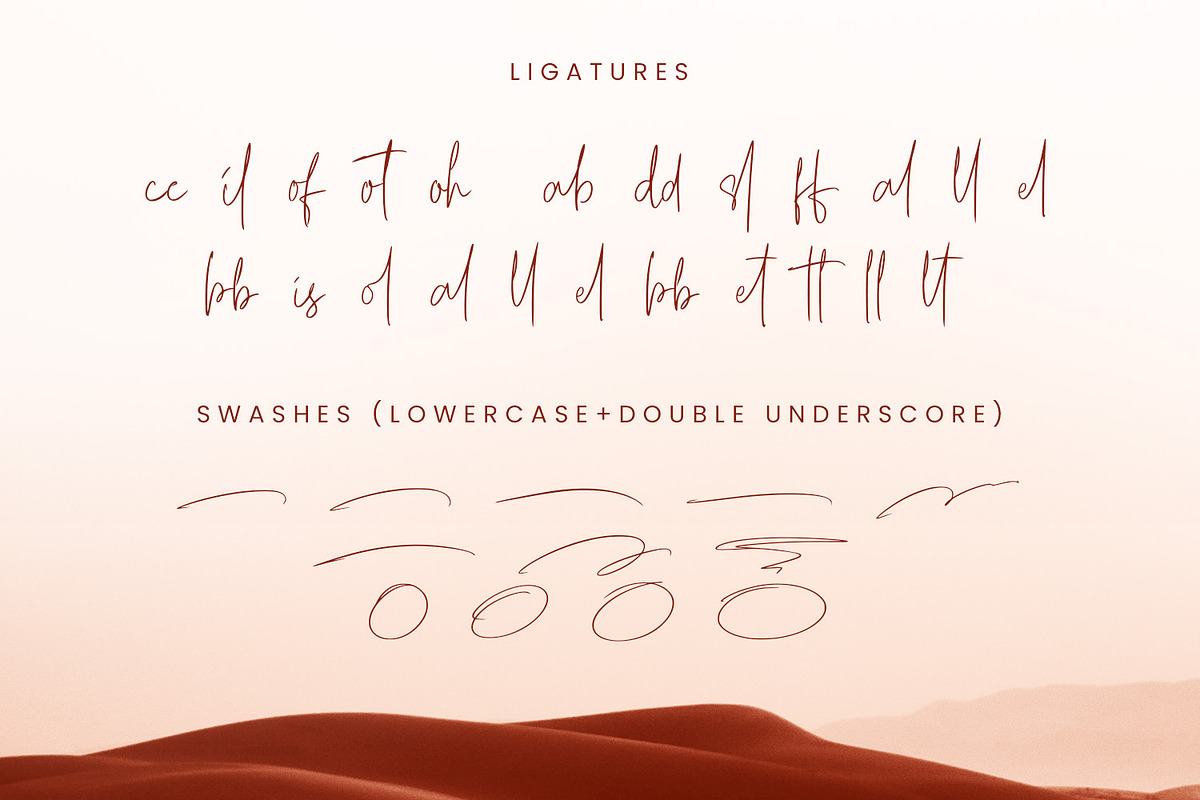 LIGATURES
cc il of ot oh ab dd sl ff al ll el
bb is ol al ll el bb et tt ll lt
SWASHES (LOWERCASE+DOUBLE UNDERSCORE)